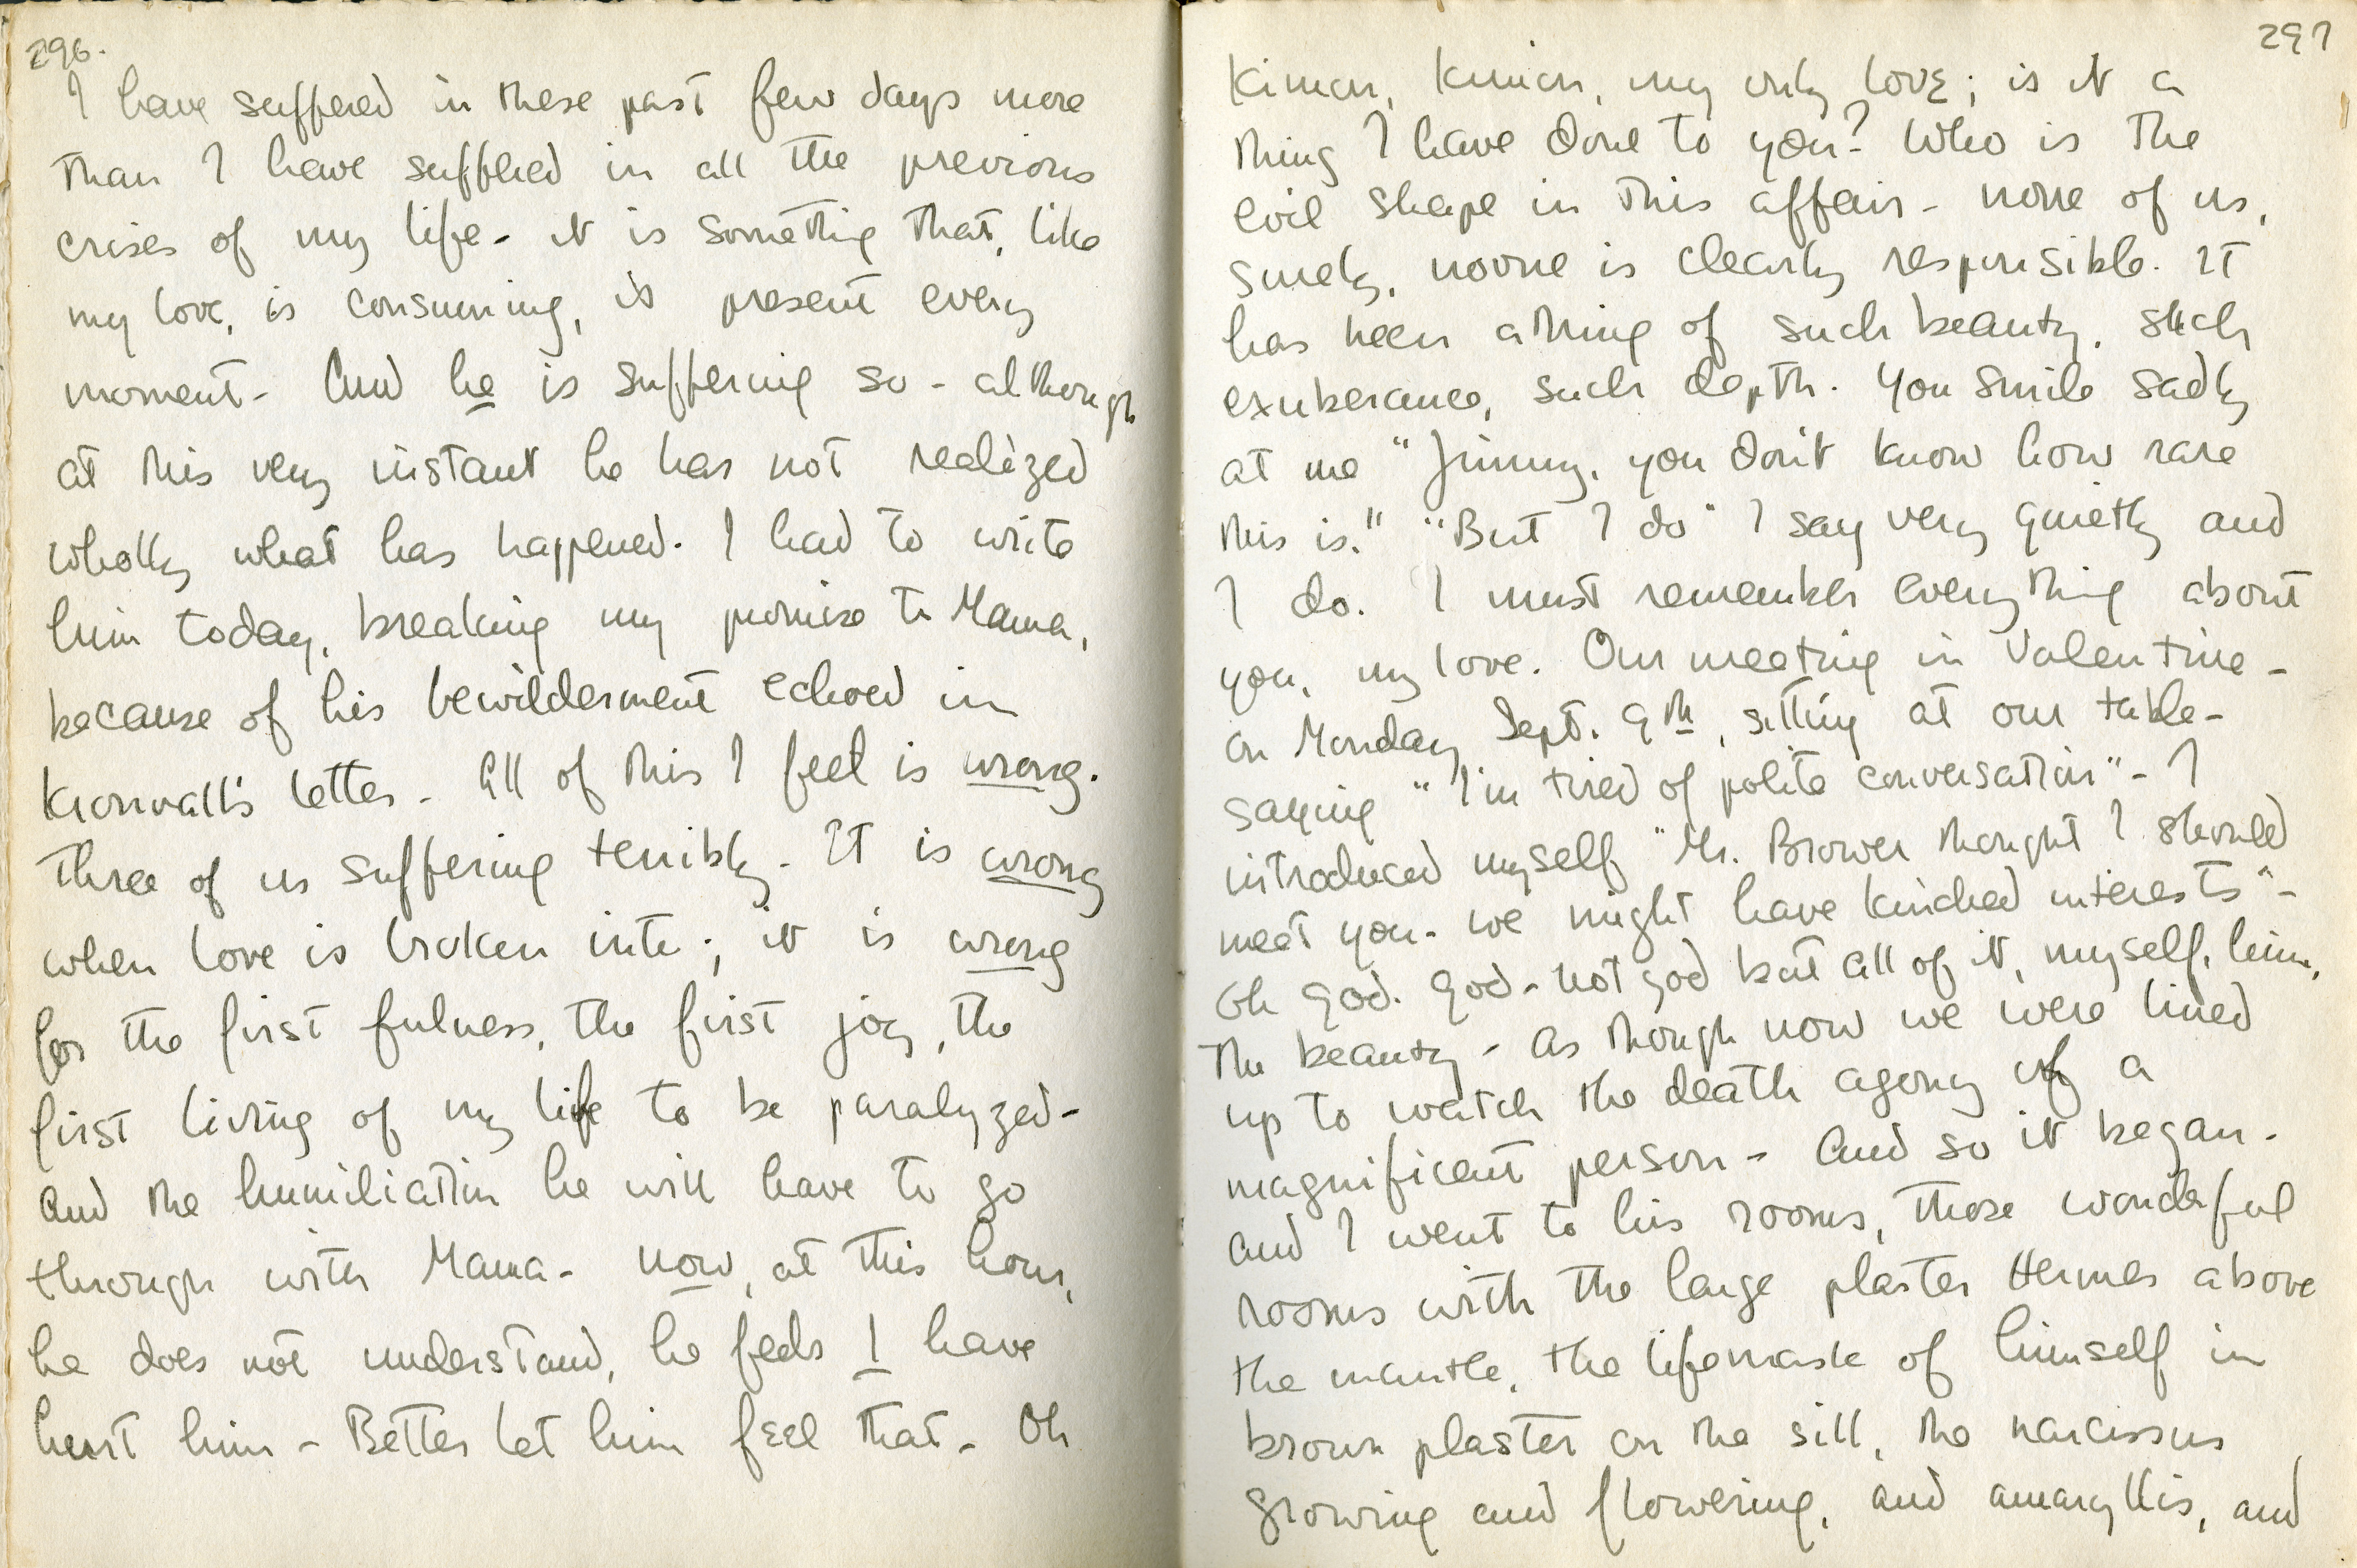 296.
I have suffered in these past few days more
than I have suffered in all the previous
crises of my life - it is something that, like
my love, is consuming, is present every
moment - And he is suffering so - although
at this very instant he has not realized
wholly what has happened. I had to write
him today, breaking my promise to Mama,
because of his bewilderment echoed in
Kronvall's letter - All of this I feel is wrong.
Three of us suffering terribly - It is wrong
when love is broken into; it is wrong
for the first fulness, the first joy, the
first living of my life to be paralyzed -
And the humiliation he will have to go
through with Mama - now, at this hour,
he does not understand, he feels I have
hurt him - Better let him feel that - Oh
297
Kimon, Kimon, my only love; is it a
thing I have done to you? Who is the
evil shape in this affair - none of us,
surely, noone is clearly responsible. It
has been a thing of such beauty, such
exuberance, such depth. You smile sadly
at me "Jimmy, you don't know how rare
this is." "But I do" I say very quietly and
I do. I must remember everything about
you, my love. Our meeting in Valentine -
on Monday Sept. 9th, sitting at our table -
saying "I'm tired of polite conversation" - I
introduced myself "Mr. Brower thought I should
meet you - we might have kindred interests" -
Oh God. God - not god but all of it, myself, him,
the beauty - as though now we were lined
up to watch the death agony of a
magnificent person - And so it began -
and I went to his rooms, those wonderful
rooms with the large plaster Hermes above
the mantle, the lifemask of himself in
brown plaster on the sill, the narcissus
growing and flowering, and amaryllis, and